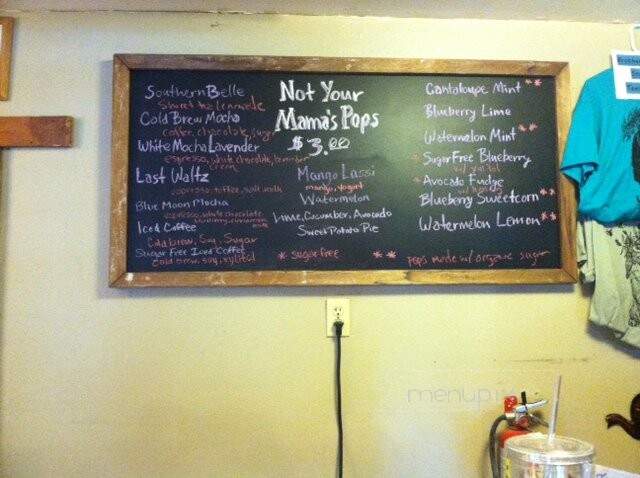 Southern Belle
Cold Brew Mocha
coffee, chocolate, sugar
White Mocha Lavender
espresso, white chocolate, lavender
cream
Last Waltz
espresso, toffee, salt, milk
Blue Moon Mocha
espresso, white chocolate
Iced Coffee
Cold brew, Soy, Sugar
Sugar Free Iced Coffee
cold brew, soy, xylitol
Not Your
Mama's Pops
$3.00
Mango Lassi
mango, yogurt
Watermelon
Lime, Cucumber, Avocado
Sweet Potato Pie
* sugar free
Cantaloupe Mint **
Blueberry Lime
Watermelon Mint **
* Sugar Free Blueberry
w/ xylitol
* Avocado Fudge
Blueberry Sweetcorn **
Watermelon Lemon **
** pops made w/ organic sugar
menupix